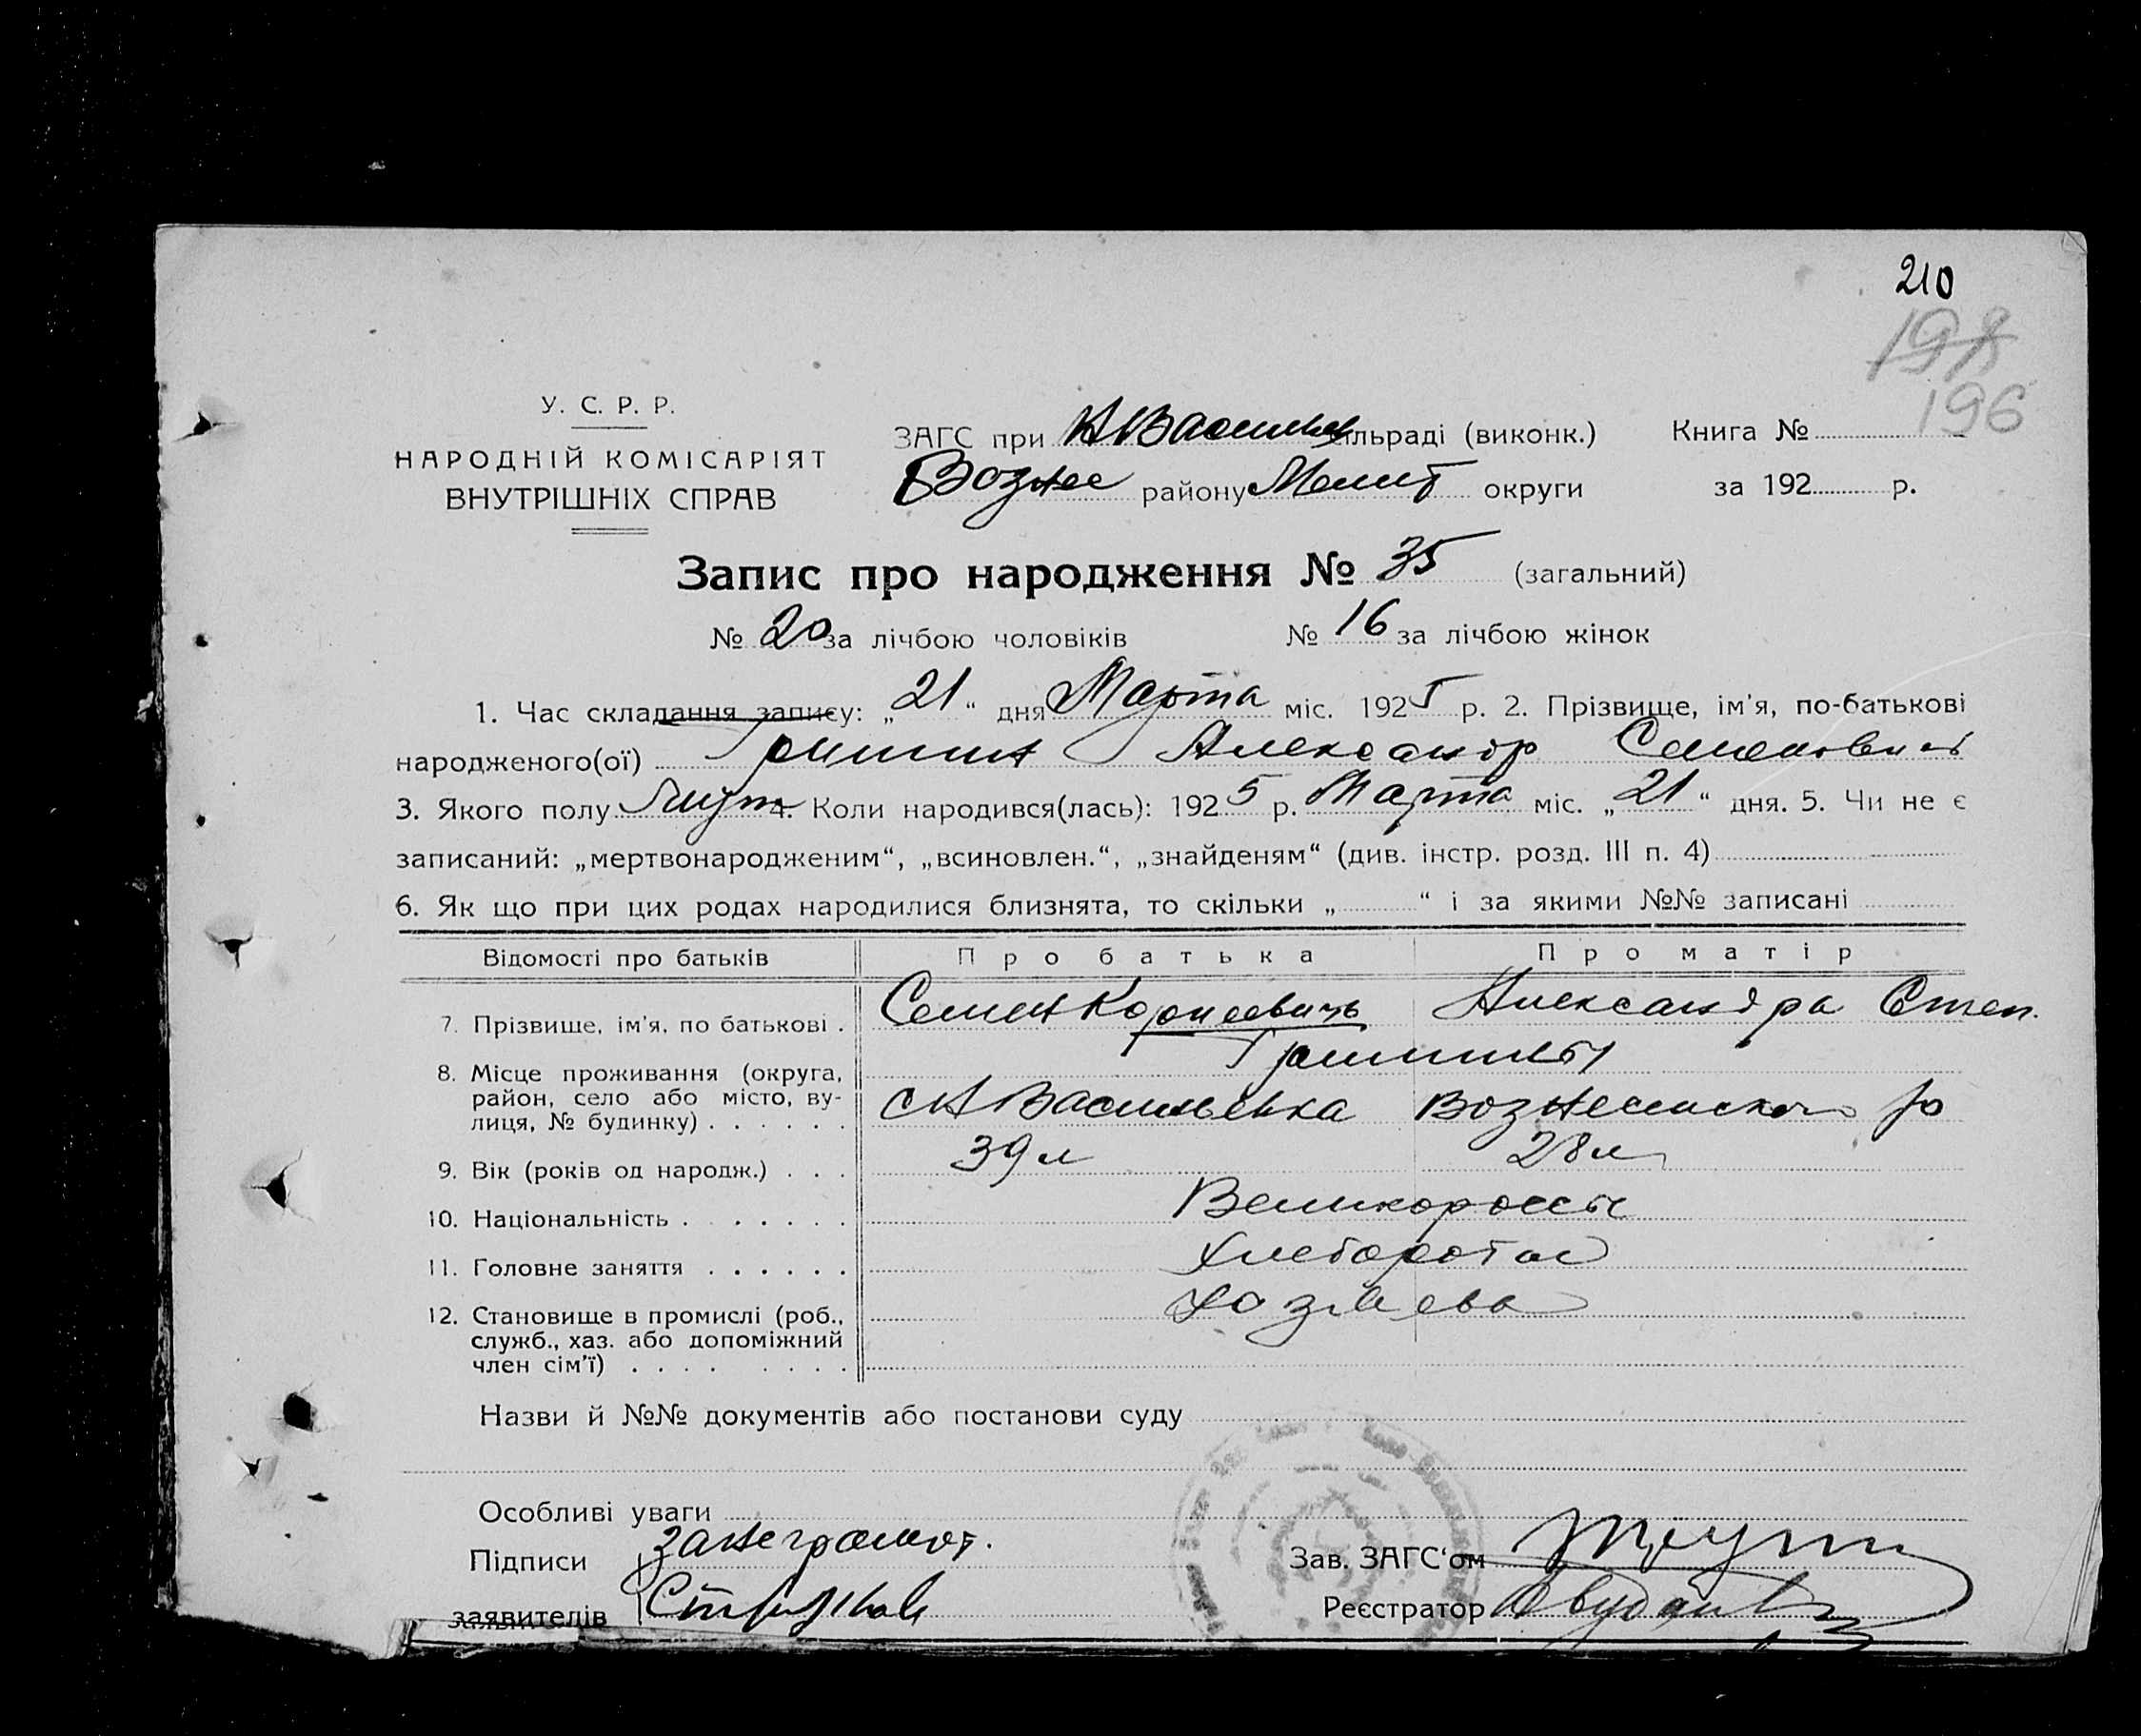 210
198
196
У. С. Р. Р.
НАРОДНІЙ КОМІСАРІЯТ
ВНУТРІШНІХ СПРАВ
ЗАГС при НВасильев сільраді (виконк.) Книга №
Вознес району Мелит округи за 192 р.
Запис про народження № 35 (загальний)
№ 20 за лічбою чоловіків № 16 за лічбою жінок
1. Час складання запису: „21“ дня Марта міс. 1925 р. 2. Прізвище, ім'я, по-батькові
народженого(ої) Гришин Александр Семенович
3. Якого полу Муж 4. Коли народився(лась): 1925 р. Марта міс. „21“ дня. 5. Чи не є
записаний: „мертвонародженим“, „всиновлен.“, „знайденям“ (див. інстр. розд. III п. 4)
6. Як що при цих родах народилися близнята, то скільки „ “ і за якими №№ записані
Відомості про батьків Про батька Про матір
7. Прізвище, ім'я, по батькові . Семен Корнеевичь Александра Степ.
Гришины
8. Місце проживання (округа,
район, село або місто, ву-
лиця, № будинку) . . . . . . с Н Васильевка Вознесенского р
9. Вік (років од народж.) . . . 39 л 28 л
10. Національність . . . . . . . Великороссы
11. Головне заняття . . . . . . Хлебороб
12. Становище в промислі (роб.,
служб., хаз. або допоміжний
член сім'ї) . . . . . . . . Хозяева
Назви й №№ документів або постанови суду
Особливі уваги
Підписи за неграмот.
заявителів
Зав. ЗАГС'ом
Реєстратор